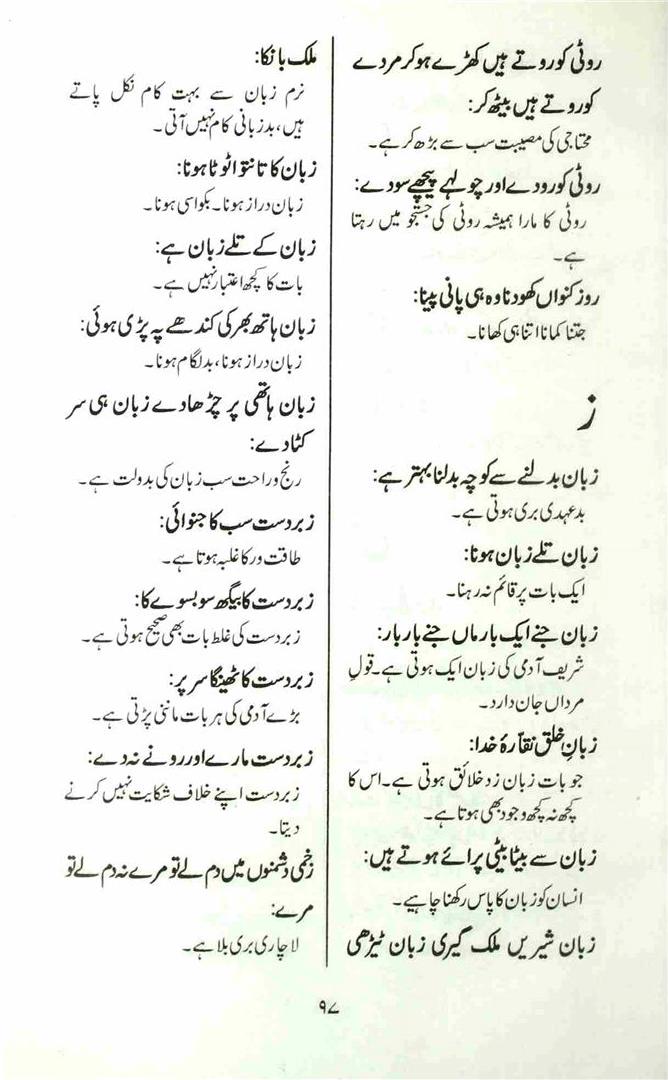 روٹی کو روتے ہیں کھڑے ہو کر مردے
کو روتے ہیں بیٹھ کر:
محتاجی کی مصیبت سب سے بڑھ کر ہے۔
روٹی کو رودے اور چولہے پیچھے سودے:
روٹی کا مارا ہمیشہ روٹی کی جستجو میں رہتا
ہے۔
روز کنواں کھودنا وہ ہی پانی پینا:
جتنا کمانا اتنا ہی کھانا۔
ز
زبان بدلنے سے کوچہ بدلنا بہتر ہے:
بدعہدی بری ہوتی ہے۔
زبان تلے زبان ہونا:
ایک بات پر قائم نہ رہنا۔
زبان جنے ایک بار ماں جنے بار بار:
شریف آدمی کی زبان ایک ہوتی ہے۔ قولِ
مرداں جان دارد۔
زبانِ خلق نقارۂ خدا:
جو بات زبان زد خلائق ہوتی ہے۔ اس کا
کچھ نہ کچھ وجود بھی ہوتا ہے۔
زبان سے بیٹا بیٹی پرائے ہوتے ہیں:
انسان کو زبان کا پاس رکھنا چاہیے۔
زبان شیریں ملک گیری زبان ٹیڑھی
ملک بانکا:
نرم زبان سے بہت کام نکل پاتے
ہیں، بدزبانی کام نہیں آتی۔
زبان کا تانتوا ٹوٹا ہونا:
زبان دراز ہونا۔ بکواسی ہونا۔
زبان کے تلے زبان ہے:
بات کا کچھ اعتبار نہیں ہے۔
زبان ہاتھ بھر کی کندھے پہ پڑی ہوئی:
زبان دراز ہونا، بدلگام ہونا۔
زبان ہاتھی پر چڑھادے زبان ہی سر
کٹادے:
رنج و راحت سب زبان کی بدولت ہے۔
زبردست سب کا جنوائی:
طاقت ور کا غلبہ ہوتا ہے۔
زبردست کا بیگھ سو بسوے کا:
زبردست کی غلط بات بھی صحیح ہوتی ہے۔
زبردست کا ٹھینگا سر پر:
بڑے آدمی کی ہر بات ماننی پڑتی ہے۔
زبردست مارے اور رونے نہ دے:
زبردست اپنے خلاف شکایت نہیں کرنے
دیتا۔
زخمی دشمنوں میں دم لے تو مرے نہ دم لے تو
مرے:
لاچاری بری بلا ہے۔
۹۷